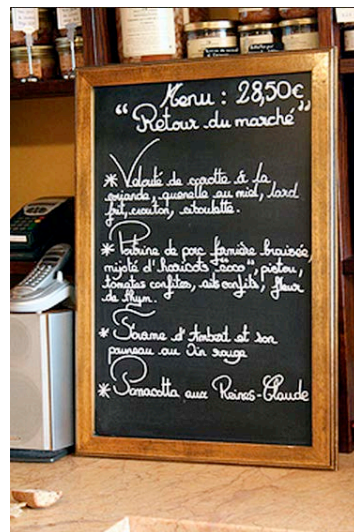 Menu : 28,50€
"Retour du marché"
* Velouté de carotte & la
coriande, quenelle au miel, lard
frit, crouton, ciboulette.
* Poitrine de porc fermière braisée,
mijoté d'haricots "coco", pistou,
tomates confites, ail confit, fleur
de thym.
* Fôrame d'Ambert et son
pruneau au Vin rouge
* Panacotta aux Reines-Claude